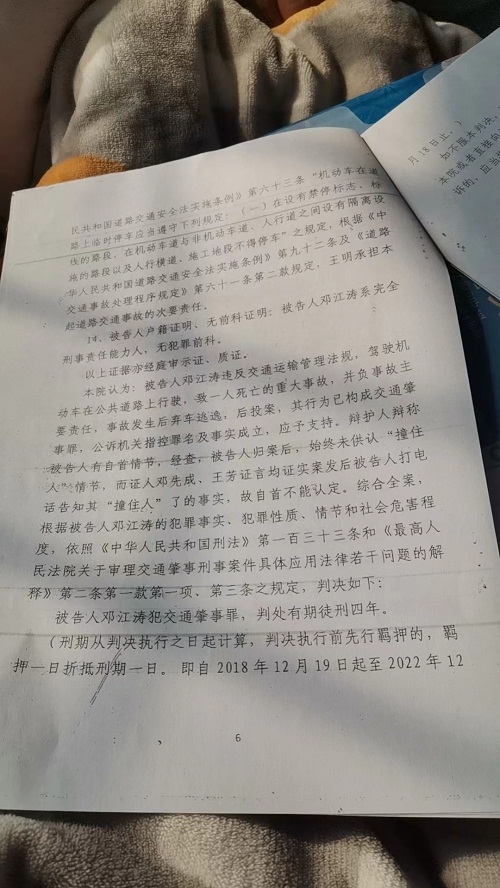 民共和国道路交通安全法实施条例》第六十三条“机动车在道
路上临时停车应当遵守下列规定：（一）在设有禁停标志、标
线的路段，在机动车道与非机动车道、人行道之间设有隔离设
施的路段以及人行横道、施工地段不得停车”之规定，根据《中
华人民共和国道路交通安全法实施条例》第九十二条及《道路
交通事故处理程序规定》第六十一条第二款规定，王明承担本
起道路交通事故的次要责任。
14．被告人户籍证明、无前科证明：被告人邓江涛系完全
刑事责任能力人，无犯罪前科。
以上证据亦经庭审示证、质证。
本院认为：被告人邓江涛违反交通运输管理法规，驾驶机
动车在公共道路上行驶，致一人死亡的重大事故，并负事故主
要责任，事故发生后弃车逃逸，后投案，其行为已构成交通肇
事罪，公诉机关指控罪名及事实成立，应予支持。辩护人辩称
被告人有自首情节，经查，被告人归案后，始终未供认“撞住
人”情节，而证人邓先成、王芳证言均证实案发后被告人打电
话告知其“撞住人”了的事实，故自首不能认定。综合全案，
根据被告人邓江涛的犯罪事实、犯罪性质、情节和社会危害程
度，依照《中华人民共和国刑法》第一百三十三条和《最高人
民法院关于审理交通肇事刑事案件具体应用法律若干问题的解
释》第二条第一款第一项、第三条之规定，判决如下：
被告人邓江涛犯交通肇事罪，判处有期徒刑四年。
（刑期从判决执行之日起计算，判决执行前先行羁押的，羁
押一日折抵刑期一日。即自2018年12月19日起至2022年12
6
月18日止。）
如不服本判决，
本院或者直接
诉的，应当